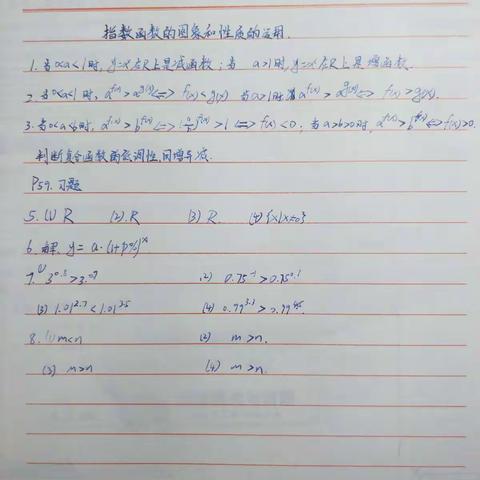 指数函数的图象和性质的运用.
1. 当0<a<1时, y=aˣ在R上是减函数; 当 a>1时, y=aˣ在R上是增函数.
2. 当0<a<1时, a^f(x)>a^g(x)<=> f(x)<g(x). 当a>1时 a^f(x)>a^g(x)<=> f(x)>g(x).
3. 当0<a<b时, a^f(x)>b^f(x)<=>(a/b)^f(x)>1<=>f(x)<0; 当a>b>0时, a^f(x)>b^f(x)<=>f(x)>0.
判断复合函数的单调性,同增异减.
P59. 习题
5. (1) R (2). R (3) R. (4) {x|x≠0}
6. 解. y= a·(1+p%)ˣ
7. (1) 3^0.8>3^0.7 (2) 0.75^-1>0.75^0.1
(3) 1.01^2.7<1.01^3.5 (4) 0.99^3.3>0.99^4.5.
8. (1) m<n (2) m>n.
(3) m>n (4) m>n.